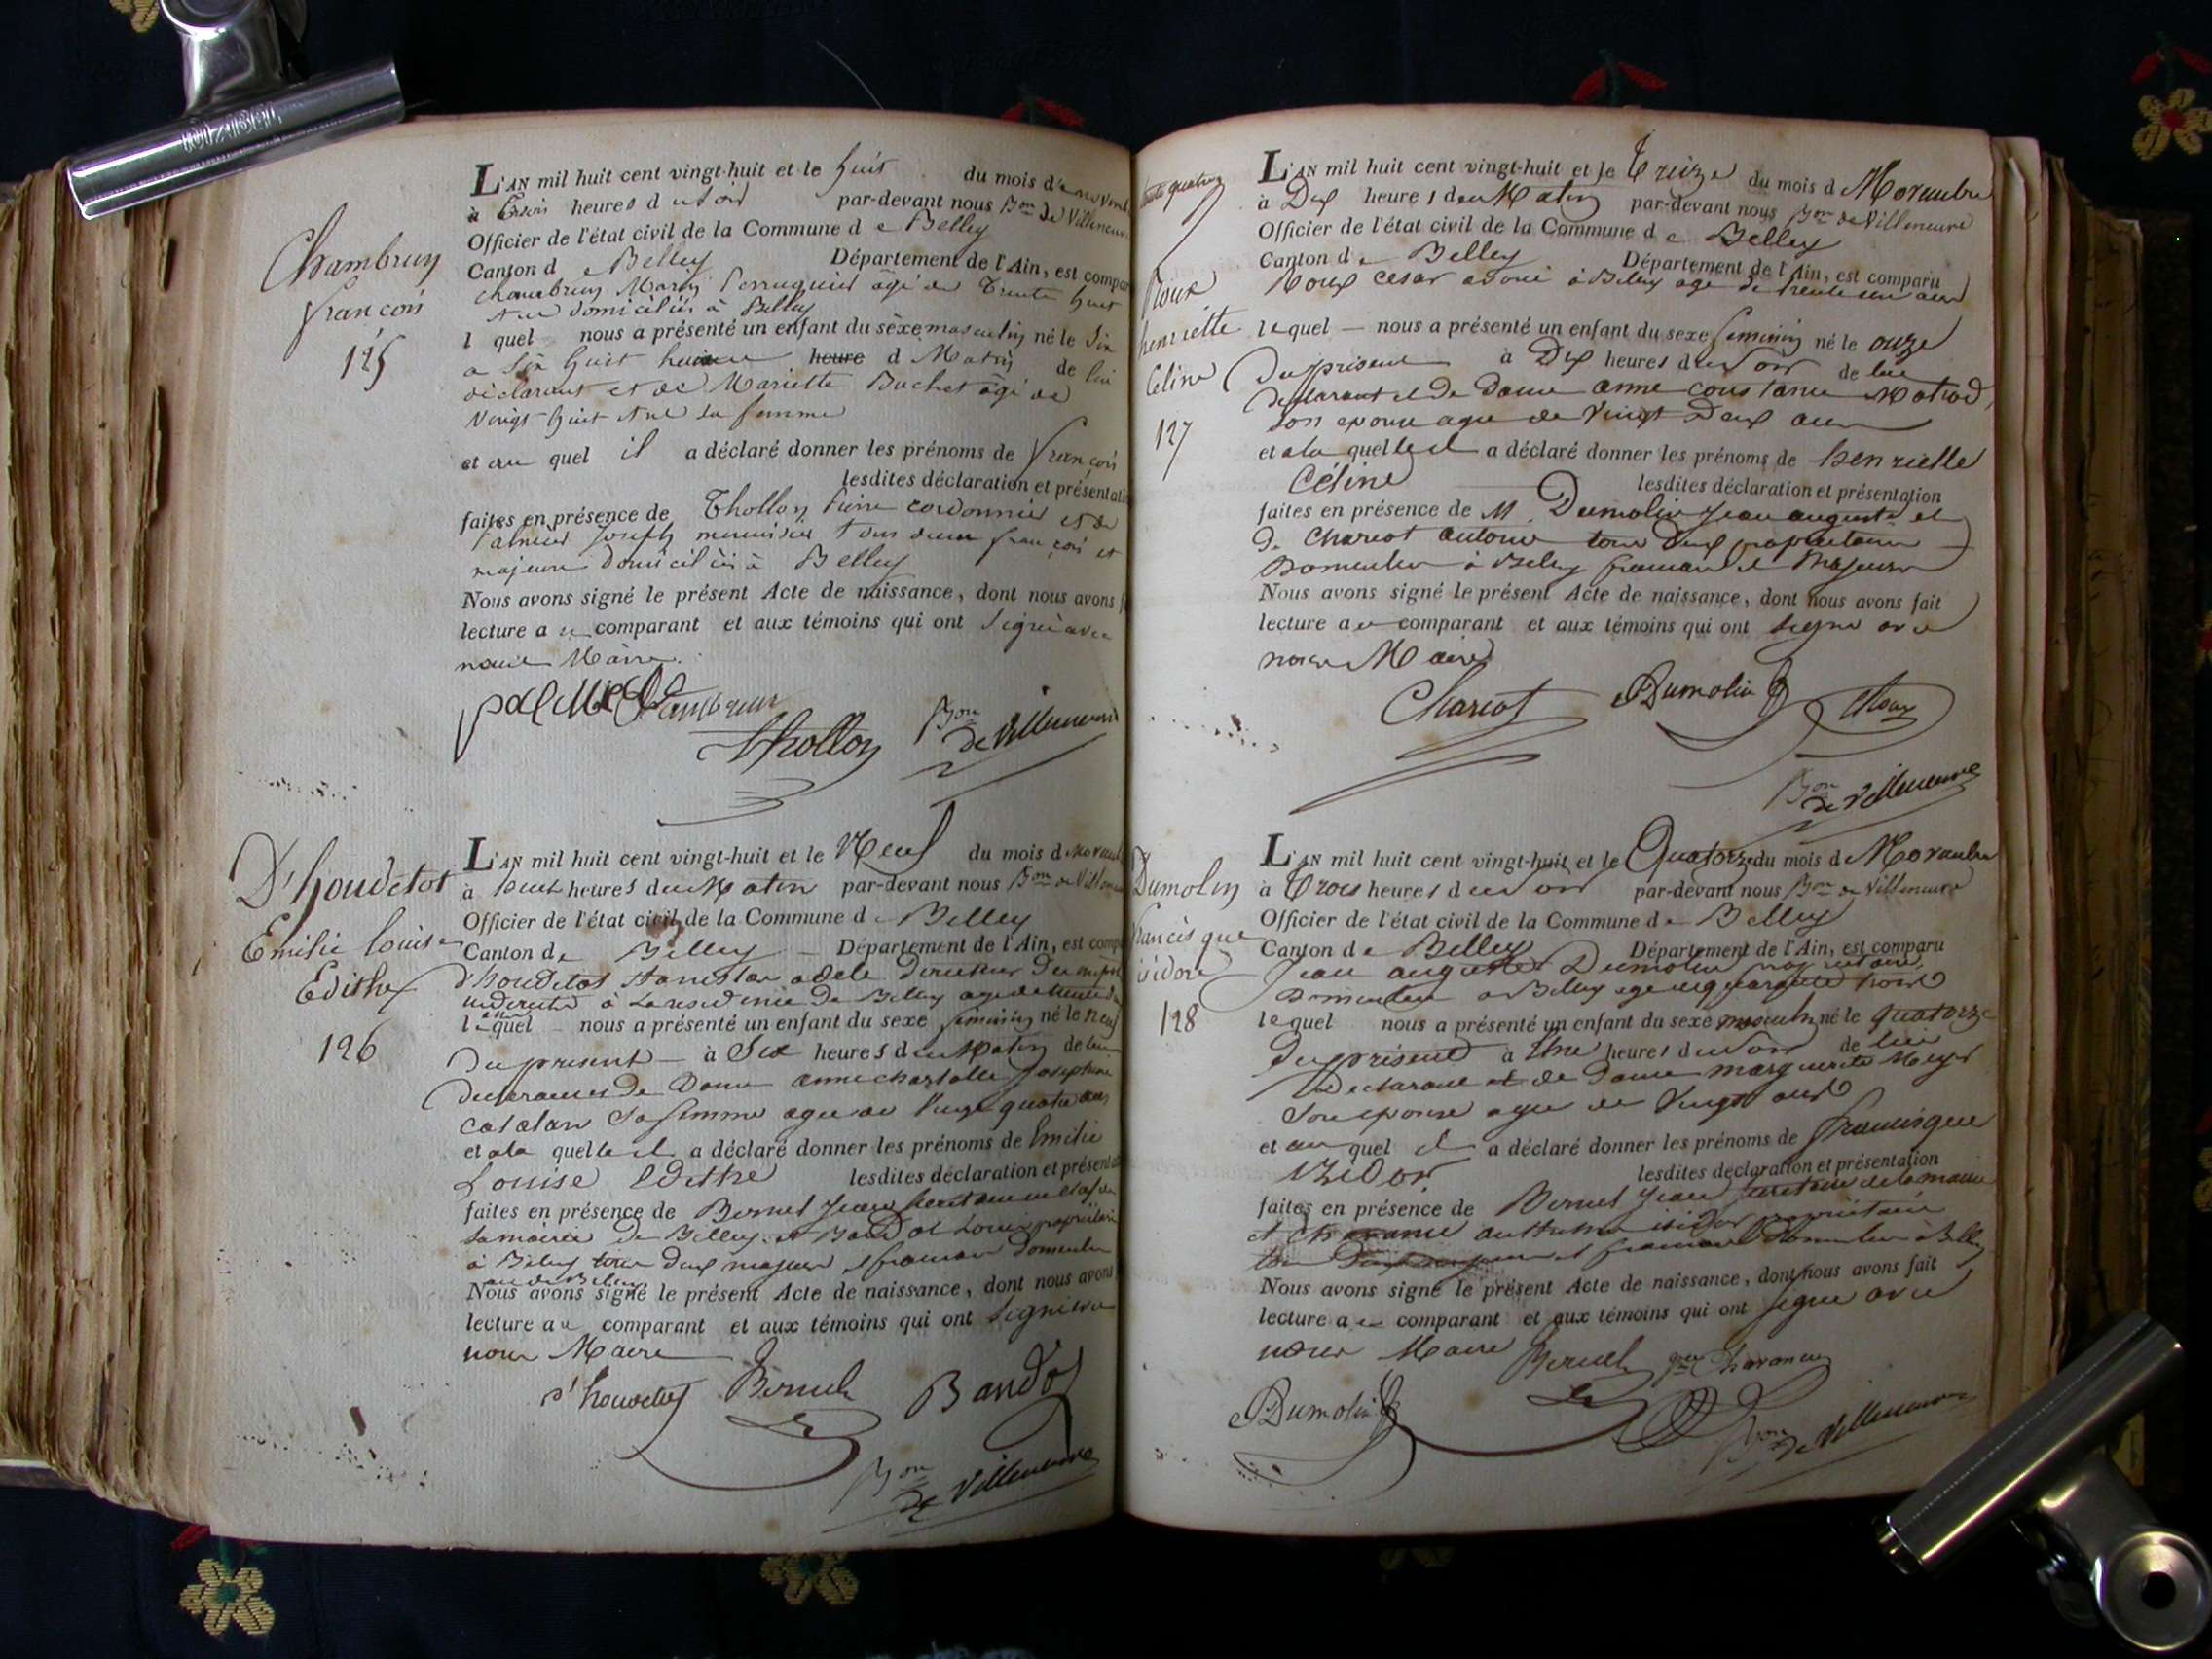 Chambrun
françois
125
L'AN mil huit cent vingt-huit et le huit du mois de novemb
à trois heures du soir par-devant nous Bon de Villeneuve
Officier de l'état civil de la Commune de Belley
Canton de Belley Département de l'Ain, est compar
chambrun perruquier âgé de trente huit
domiciliés à Belley
lequel nous a présenté un enfant du sèxe masculin né le six
a huit heure d Matin de lui
déclarant et de Mariette Buchet âgé de
vingt huit sa femme
et au quel il a déclaré donner les prénoms de françois
lesdites déclaration et présentati
faites en présence de Thollon Pierre cordonnier et de
Palmier Joseph menuisier tous deux françois et
majeurs domiciliés à Belley
Nous avons signé le présent Acte de naissance, dont nous avons f
lecture au comparant et aux témoins qui ont signé avec
nous Maire.
Thollon
Bon de Villeneuve
D'houdetot
Emilie louise
Edithe
126
L'AN mil huit cent vingt-huit et le Neuf du mois de novemb
à heures du Matin par-devant nous Bon de Villeneuve
Officier de l'état civil de la Commune de Belley
Canton de Belley Département de l'Ain, est compa
d'houdetot Stanislas adele Directeur
à la residence de Belley
lequel nous a présenté un enfant du sexe feminin né le neuf
du present à Six heures du Matin de lui
declarant et de Dame anne charlotte Josephine
catalan sa femme agee de vingt quatre ans
et a la quelle il a déclaré donner les prénoms de Emilie
Louise Edithe lesdites déclaration et présentat
faites en présence de Bernel Jean
la mairie de Belley et Baudot Louis propriétaire
à Belley tous deux majeurs et francais
Nous avons signé le présent Acte de naissance, dont nous avons
lecture au comparant et aux témoins qui ont signé avec
nous Maire
d'houdetot Bernel Baudot
Bon de Villeneuve
Roux
henriette
Céline
127
L'AN mil huit cent vingt-huit et le treize du mois de Novembre
à Dix heures du Matin par-devant nous Bon de Villeneuve
Officier de l'état civil de la Commune de Belley
Canton de Belley Département de l'Ain, est comparu
Roux Cesar avoué à Belley age de trente un ans
lequel nous a présenté un enfant du sexe feminin né le onze
du présent à Dix heures du soir de lui
declarant et de Dame anne constance
son epouse agee de vingt Deux ans
et a la quelle il a déclaré donner les prénoms de henriette
Céline lesdites déclaration et présentation
faites en présence de M. Dumolin Jean auguste et
de Charcot antoine tous deux propriétaires
domiciliés à Belley francais et Majeurs
Nous avons signé le présent Acte de naissance, dont nous avons fait
lecture au comparant et aux témoins qui ont signé avec
nous Maire
Charcot Dumolin Roux
Bon de Villeneuve
Dumolin
francisque
isidore
128
L'AN mil huit cent vingt-huit et le Quatorze du mois de Novembre
à Trois heures du soir par-devant nous Bon de Villeneuve
Officier de l'état civil de la Commune de Belley
Canton de Belley Département de l'Ain, est comparu
Jean auguste Dumolin propriétaire
domicilié a Belley age de quarante trois
lequel nous a présenté un enfant du sexe masculin né le quatorze
du présent à Une heures du soir de lui
Declarant et de Dame marguerite
son epouse agee de vingt ans
et au quel il a déclaré donner les prénoms de francisque
Izidor lesdites déclaration et présentation
faites en présence de Bernel Jean secrétaire de la mairie
et isidor propriétaire
tous deux majeurs et francais domiciliés à Belley
Nous avons signé le présent Acte de naissance, dont nous avons fait
lecture au comparant et aux témoins qui ont signé avec
nous Maire
Bernel
Dumolin
Bon de Villeneuve